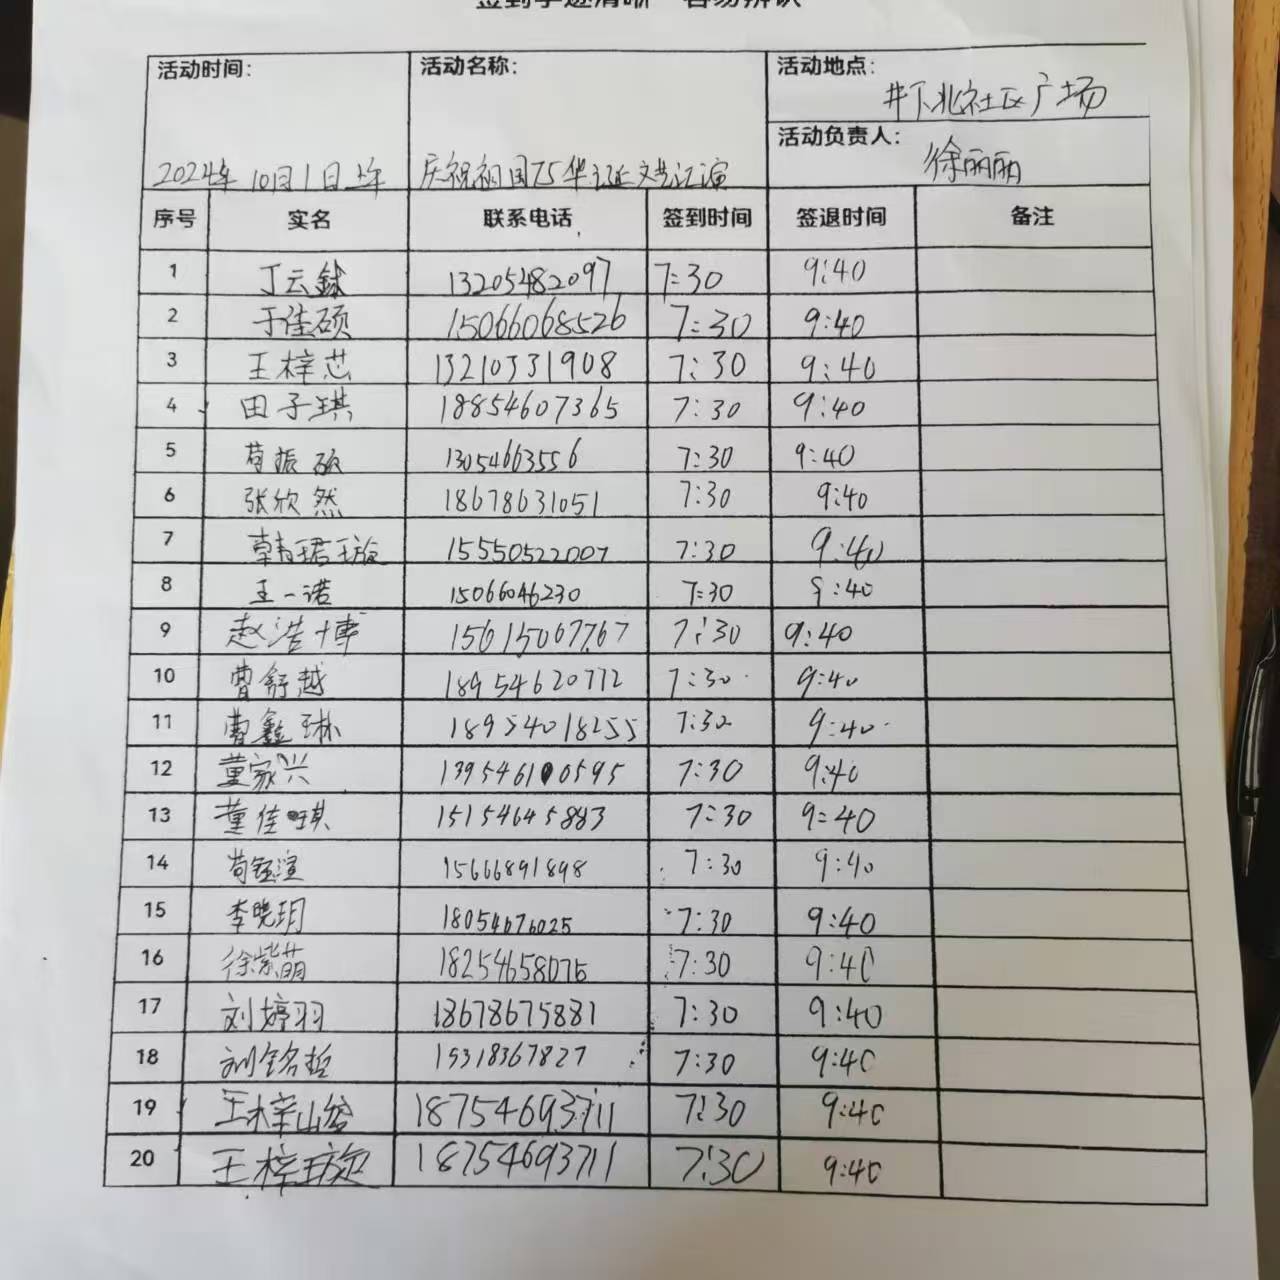 签到字迹清晰 容易辨识
活动时间： 活动名称： 活动地点：
井下北社区广场
活动负责人：
徐丽丽
2024年10月1日上午 庆祝祖国75华诞文艺汇演
序号 实名 联系电话 签到时间 签退时间 备注
1 丁云 13205482097 7:30 9:40
2 于佳硕 15066068526 7:30 9:40
3 王梓芯 13210331908 7:30 9:40
4 田子琪 18854607365 7:30 9:40
5 苟振硕 13054663556 7:30 9:40
6 张欣然 18678631051 7:30 9:40
7 韩珺璇 15550522007 7:30 9:40
8 王一诺 15066046230 7:30 9:40
9 赵浩博 15615067767 7:30 9:40
10 曹舒越 18954620772 7:30 9:40
11 曹鑫琳 18954018255 7:30 9:40
12 董家兴 13954610595 7:30 9:40
13 董佳琪 15154645883 7:30 9:40
14 苟钰渲 15666891898 7:30 9:40
15 李晓玥 18054676025 7:30 9:40
16 徐紫萌 18254658075 7:30 9:40
17 刘婷羽 18678675881 7:30 9:40
18 刘铭哲 15318367827 7:30 9:40
19 王梓 18754693711 7:30 9:40
20 王梓璇 18754693711 7:30 9:40